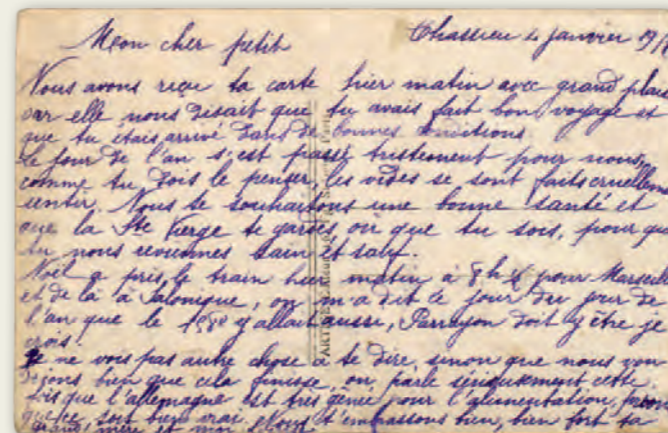 Mon cher petit
Chassieu 4 janvier 19
Nous avons reçu ta carte hier matin avec grand plais
car elle nous disait que tu avais fait bon voyage et
que tu étais arrivé dans de bonnes conditions.
Le jour de l'an s'est passé tristement pour nous,
comme tu dois le penser, les vides se sont faits cruellem
sentir. Nous te souhaitons une bonne santé et
que la Ste Vierge te garde où que tu sois, pour que
tu nous reviennes sain et sauf.
Noël a pris le train hier matin à 8h pour Marseil
et de là à Salonique, on m'a dit le jour du jour de
l'an que le y allait aussi, doit y être je
crois.
Je ne vois pas autre chose à te dire, sinon que nous vou
bien que cela finisse, on parle sérieusement cette
fois que l'allemagne est très génée pour l'alimentation,
que ce soit bien vrai. Nous t'embrassons bien, bien fort ta
grand, mère et moi